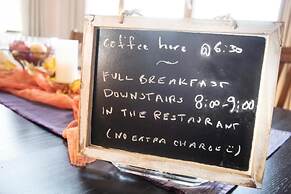 Coffee here @ 6:30
~
FULL BREAKFAST
DOWNSTAIRS 8:00-9:00
IN THE RESTAURANT
(NO EXTRA CHARGE :))